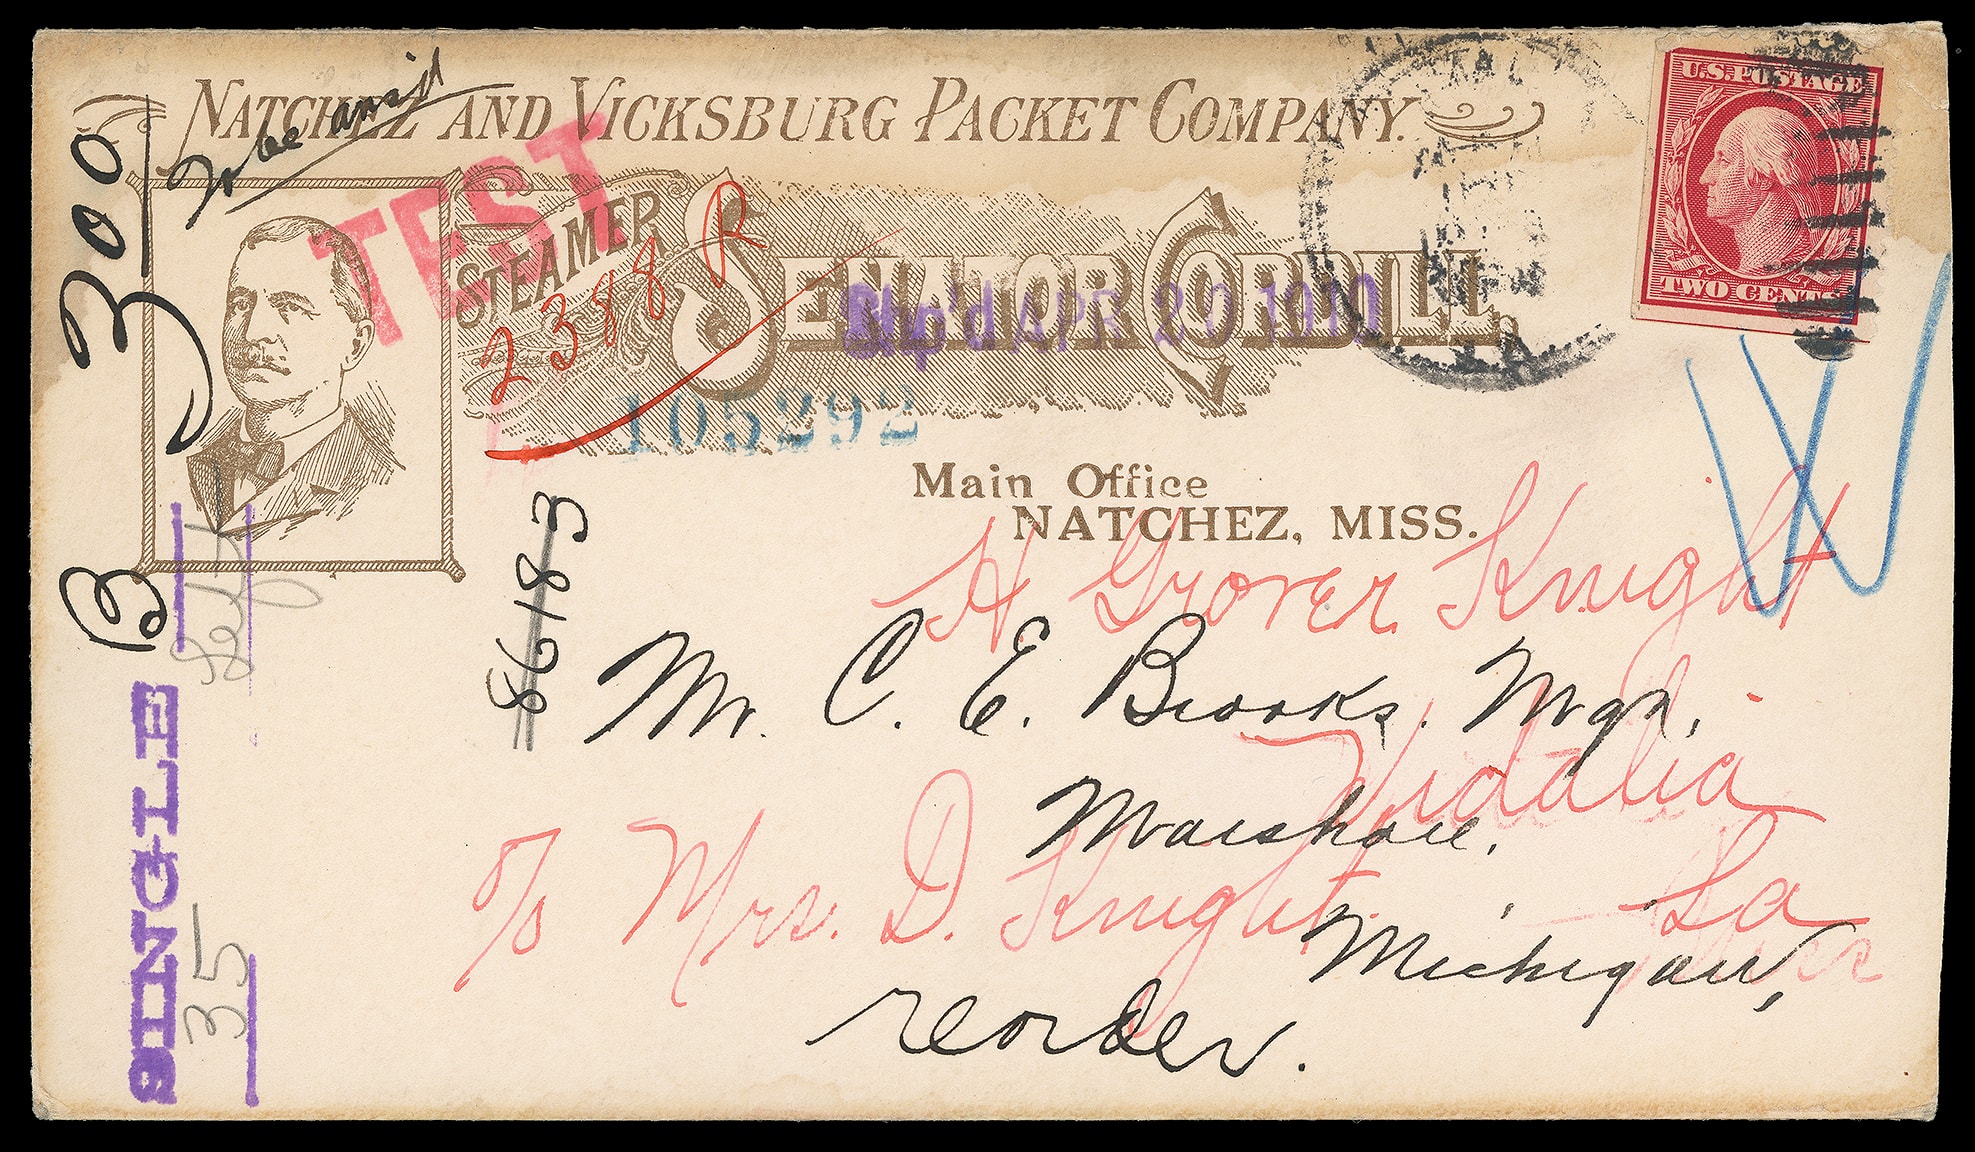 NATCHEZ AND VICKSBURG PACKET COMPANY.
To be ans'd
300
TEST
STEAMER
SENATOR CORDILL.
2388 R
Ship'd APR 20 1910
105292
U.S. POSTAGE
TWO CENTS
Main Office
NATCHEZ, MISS.
W
8618-3
B
H Grover Knight
Mr. C. E. Brooks. Mgr.
Vidalia
Marshall.
La
c/o Mrs. D. Knight
Michigan,
reorder.
SINGLE
Left
35